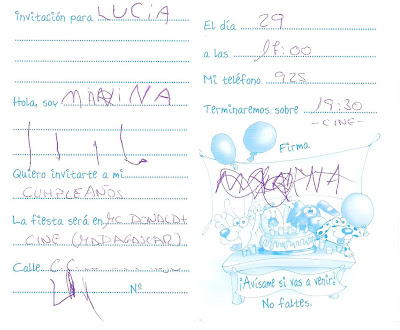 invitación para LUCÍA
Hola, soy MARINA
Quiero invitarte a mi
CUMPLEAÑOS
La fiesta será en MC DONALD +
CINE (MADAGASCAR)
Calle C.C.
Nº
El día 29
a las 17:00
Mi teléfono 925
Terminaremos sobre 19:30
-CINE-
Firma
¡Avísame si vas a venir!
No faltes.